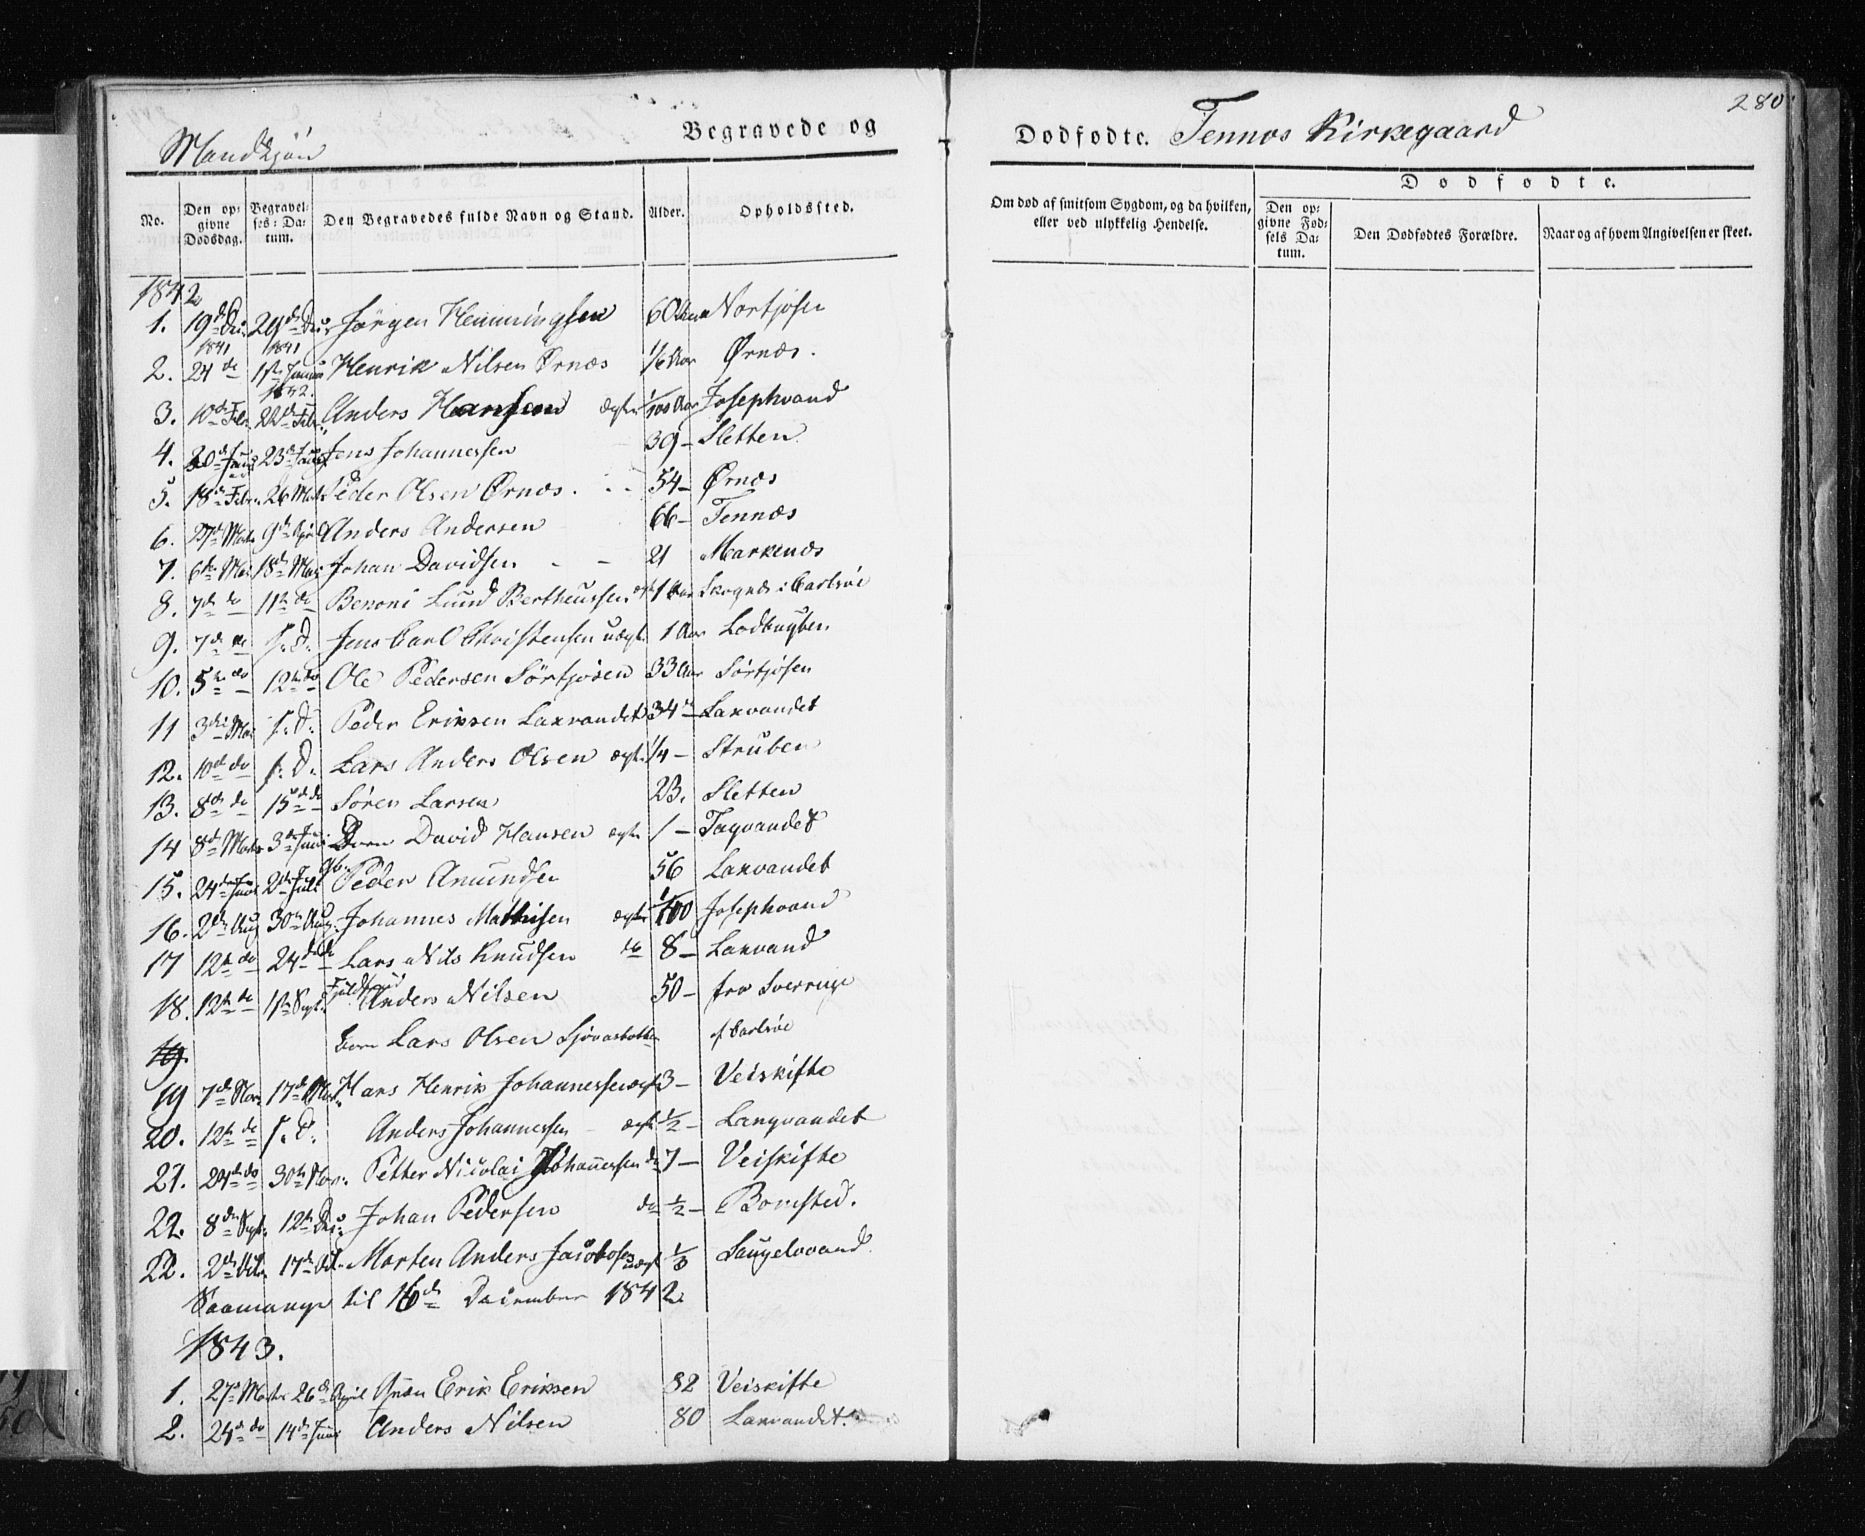 280
Mandkjön
Begravede og
Dødfødte. Tennæs Kirkegaard
No.
Den opgivne Dødsdag.
Begravelses-Datum.
Den Begravedes fulde Navn og Stand.
Alder.
Opholdssted.
Om død af smitsom Sygdom, og da hvilken, eller ved ulykkelig Hendelse.
Dødfødte.
Den opgivne Fødsels Datum.
Den Dødfødtes Forældre.
Naar og af hvem Angivelsen er skeet.
1842
1. 19de Dec 1841 29de Dec 1841 Jørgen Hemmingsen 60 Aar Nortfjosen
2. 24de 1ste Januar 1842. Henrik Nilsen Ørnæs 1/6 Aar Ørnæs.
3. 10de Feb. 22de Feb. Anders Hansen ægte 1/100 Aar Josephvand
4. 20de Janu 23de Janu Jens Johannessen 39 – Sletten
5. 18de Febr. 26 Marts Peder Olsen Ørnæs. 54 – Ørnæs
6. 27de Marts 9de April Anders Andersen 66 – Tennæs
7. 6te Mai 18de Mai Johan Davidsen 21 Markenæs
8. 7de do 11te do Benoni Lund Bertheussen ægte 1 Aar Skognæs i Carlsøe
9. 7de do s. D. Jens Carl Christensen uægte 1 Aar
10. 5te do 12te do Ole Pedersen Sörfjosen 33 Aar Sörfjosen
11 3die Mai s. D. Peder Eriksen Laxvandet 34 – Laxvandet
12. 10de do s. D. Lars Anders Olsen ægte 1/4 – Struben
13. 8de do 15de do Sören Larsen 23. Sletten
14 8de Marts 3de Juni Barn David Hansen ægte 1 – Tagvandet
15. 24de Juni 2den Juli Peder Amundsen 56 Laxvandet
16. 2den Aug 30te Aug. Johannes Mathisen ægte 1/100 Josephvand
17 12te do 24de do Lars Nils Knudsen do 8 – Laxvand
18. 12te do 1ste Sept. Fjeldfind Anders Nilsen 50 – fra Sverrige
19. Barn Lars Olsen Sjøvasbotten af Carlsöe
19 7de Nov. 17de Nov. Hans Henrik Johannessen ægte 3 – Veiskifte
20. 12te do s. D. Anders Johannessen – ægte 1/2 – Langvandet
21. 24de do 30te Nov. Petter Nicolai Johannessen do 7 – Veiskifte
22. 8de Sept. 12te Dec. Johan Pedersen do 1/2 – Bomsted.
22. 2den Oct. 17de Oct. Morten Anders Jacobsen uægte 1/3 Saugelvvand.
Saamange til 16de December 1842.
1843.
1. 27de Marts 26de April Qvæn Erik Eriksen 82 Veiskifte
2. 24de do 14de Juni Anders Nilsen 80 Laxvandet.